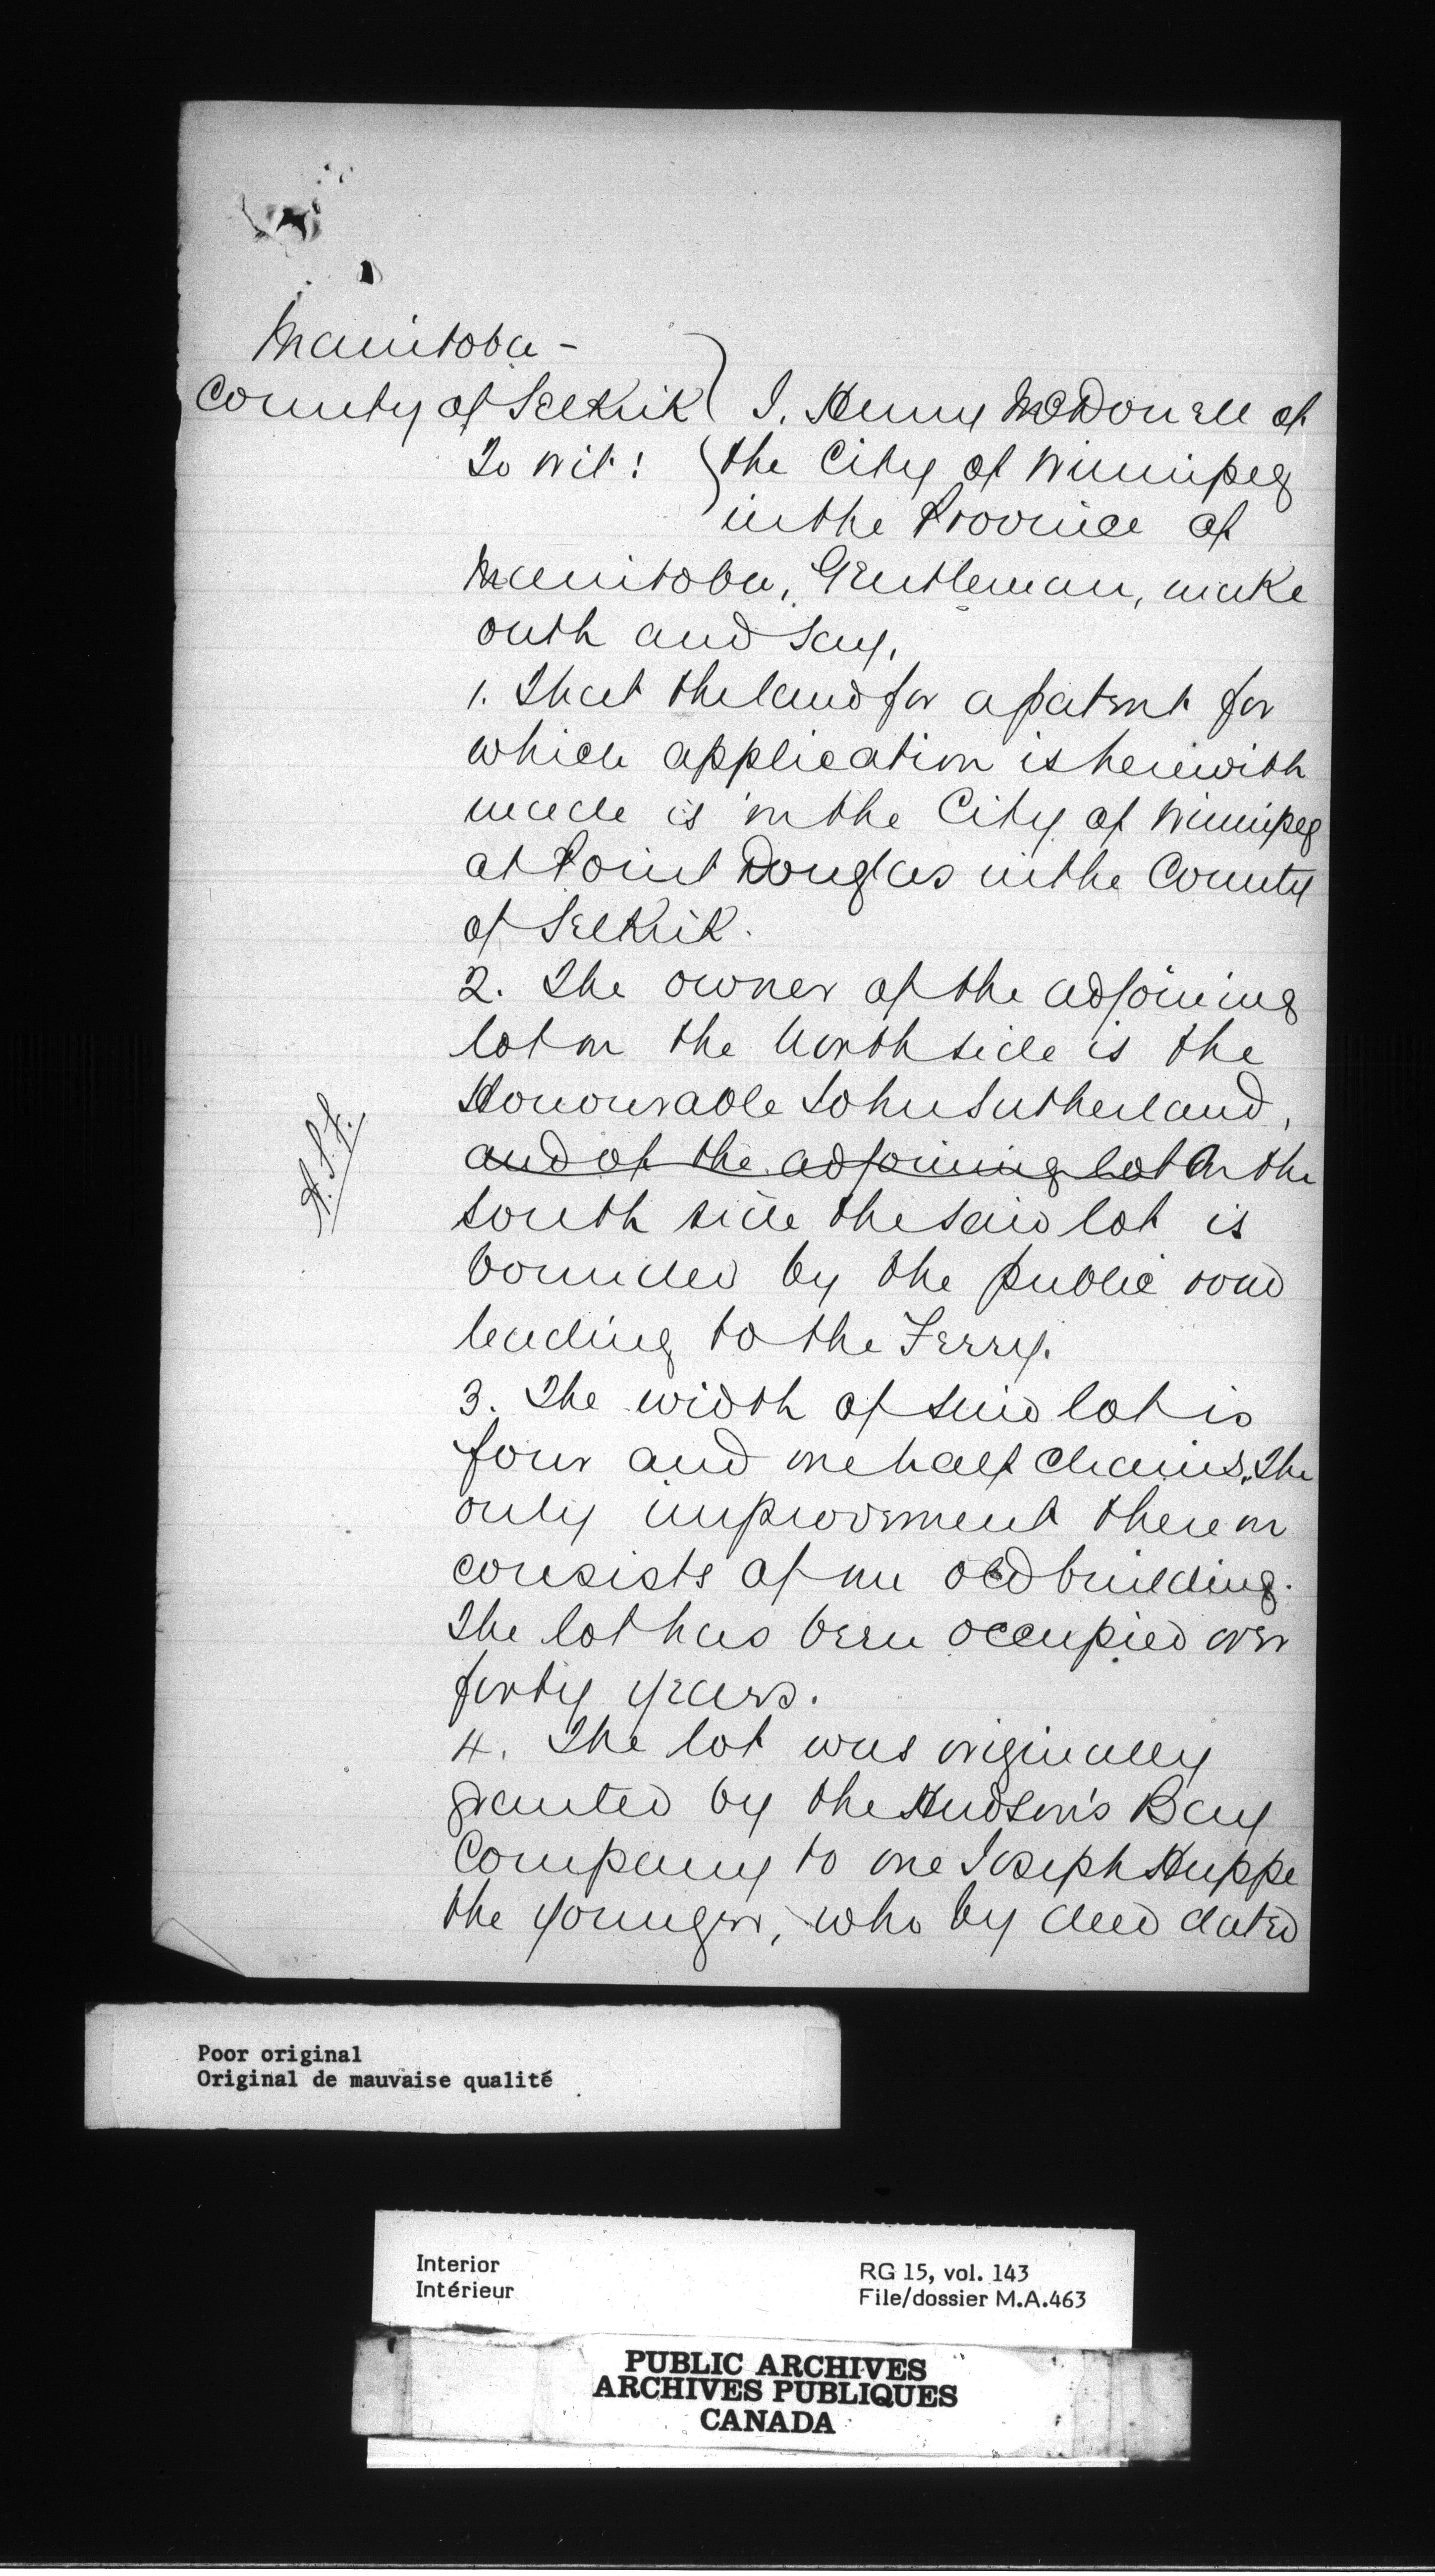 Manitoba -
County of Selkirk } I, Henry McDonell of
To wit: } the City of Winnipeg
in the Province of
Manitoba, Gentleman, make
oath and say,
1. That the land for a patent for
which application is herewith
made is in the City of Winnipeg
at Point Douglas in the County
of Selkirk.
2. The owner of the adjoining
lot on the North side is the
Honourable John Sutherland,
and of the adjoining lot On the
south side the said lot is
bounded by the public road
leading to the Ferry.
3. The width of said lot is
four and one half chains. The
only improvement thereon
consists of an old building.
The lot has been occupied over
forty years.
4. The lot was originally
granted by the Hudson's Bay
Company to one Joseph Huppe
the younger, who by deed dated
Poor original
Original de mauvaise qualité
Interior
Intérieur
RG 15, vol. 143
File/dossier M.A.463
PUBLIC ARCHIVES
ARCHIVES PUBLIQUES
CANADA